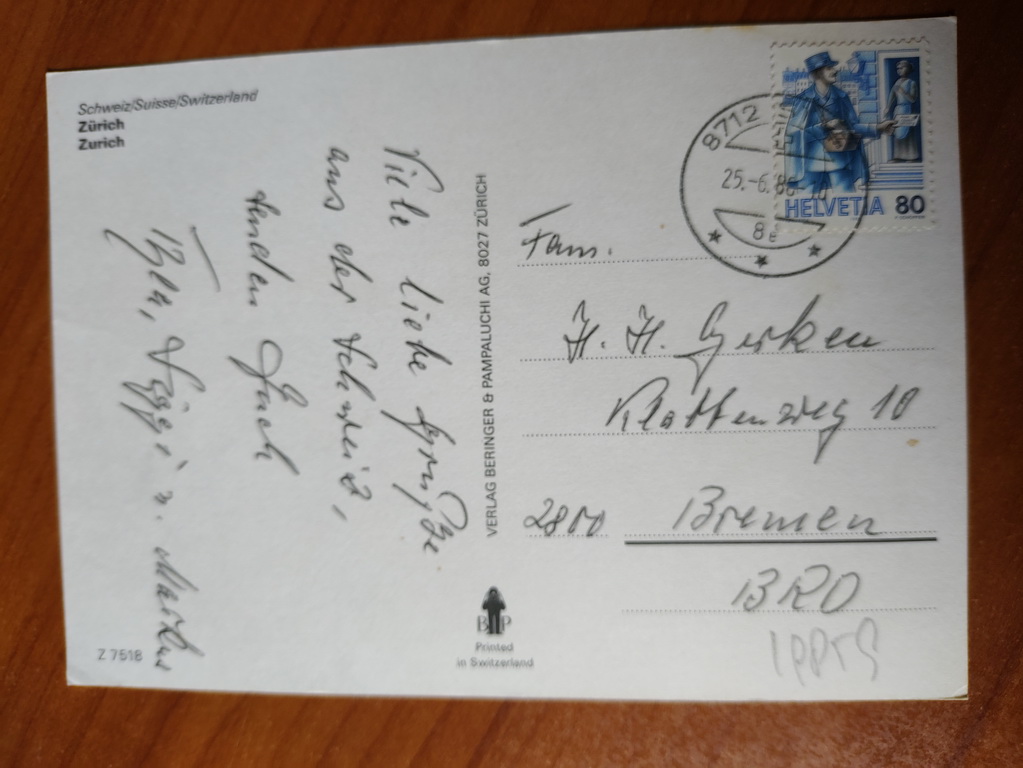 Schweiz/Suisse/Switzerland
Zürich
Zurich
Viele liebe Grüße
aus der Schweiz,
senden Euch
Siggi u. Markus
Z 7518
VERLAG BERINGER & PAMPALUCHI AG, 8027 ZÜRICH
B P
Printed
in Switzerland
8712
25.-6.86
8e
HELVETIA 80
Fam.
H. H. Gerken
Klattenweg 10
2800 Bremen
BRD